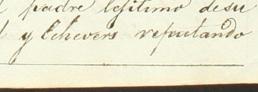 padre lejitimo de su
y Echevers reputando